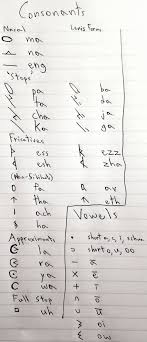 Consonants
Nasal Lenis Forms
ma
na
eng
"Stops"
pa ba
ta da
cha ja
ka ga
Fricatives
ess ezz
esh zha
(Non-Sibilant)
fa av
tha eth
ach
ha
Vowels
Approximants
la
ra
ya
wa
Full Stop
uh
short a, e, i, schwa
short o, u, oo
ā
ē
ī
ō
ū
oi
ow